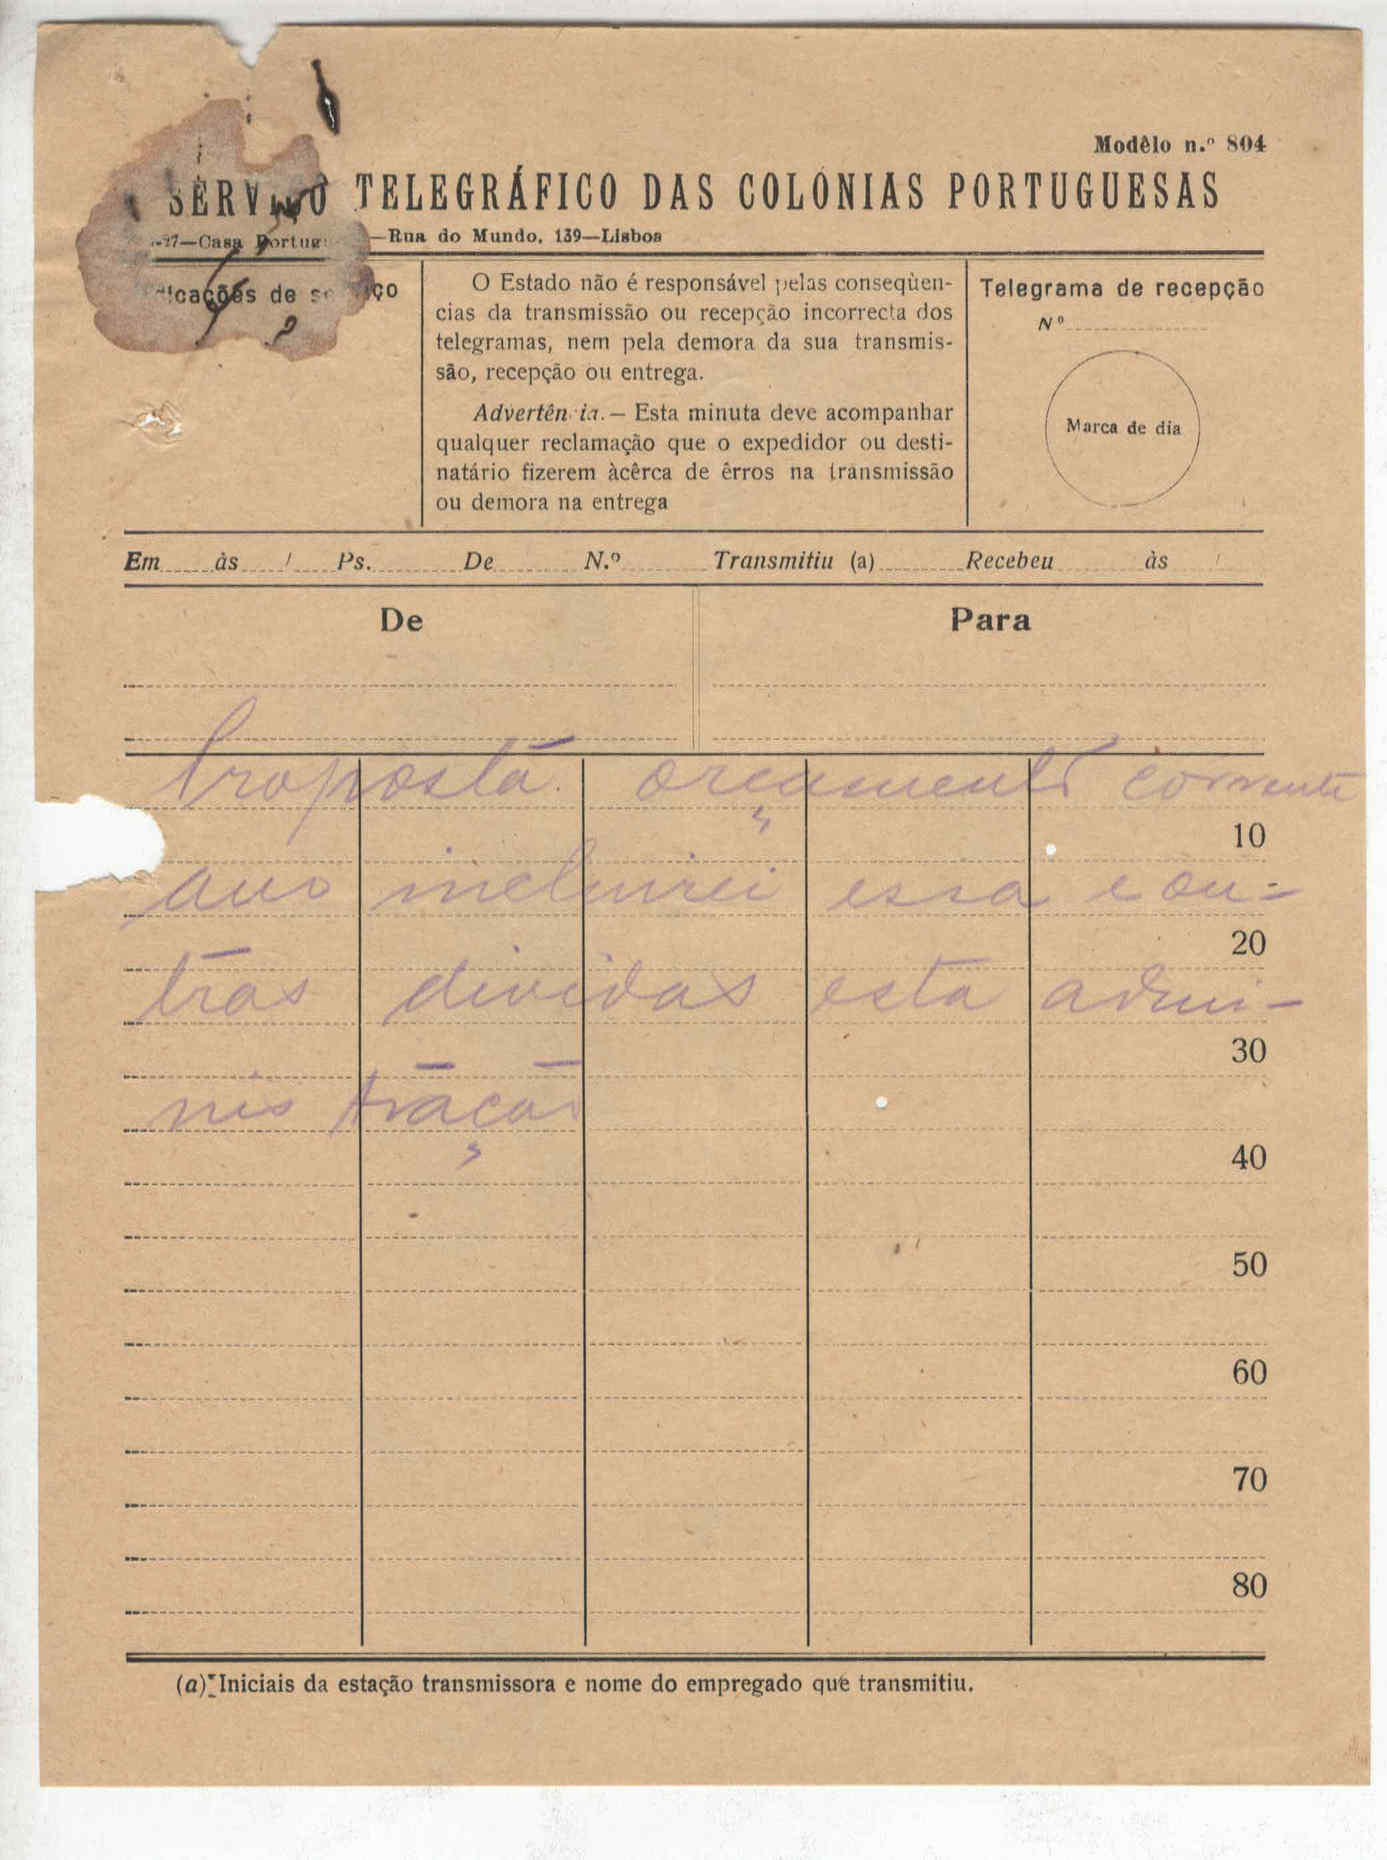 Modêlo n.º 804
SERVIÇO TELEGRÁFICO DAS COLÓNIAS PORTUGUESAS
—Rua do Mundo, 139—Lisboa
Indicações de serviço
O Estado não é responsável pelas conseqùen-
cias da transmissão ou recepção incorrecta dos
telegramas, nem pela demora da sua transmis-
são, recepção ou entrega.
Advertência.— Esta minuta deve acompanhar
qualquer reclamação que o expedidor ou desti-
natário fizerem àcêrca de êrros na transmissão
ou demora na entrega
Telegrama de recepção
Nº
Marca de dia
Em às / Ps. De N.º Transmitiu (a) Recebeu às /
De Para
Proposta orçamento corrente
10
ano incluirei essa e ou-
20
tras dividas esta admi-
30
nistração
40
50
60
70
80
(a) Iniciais da estação transmissora e nome do empregado que transmitiu.